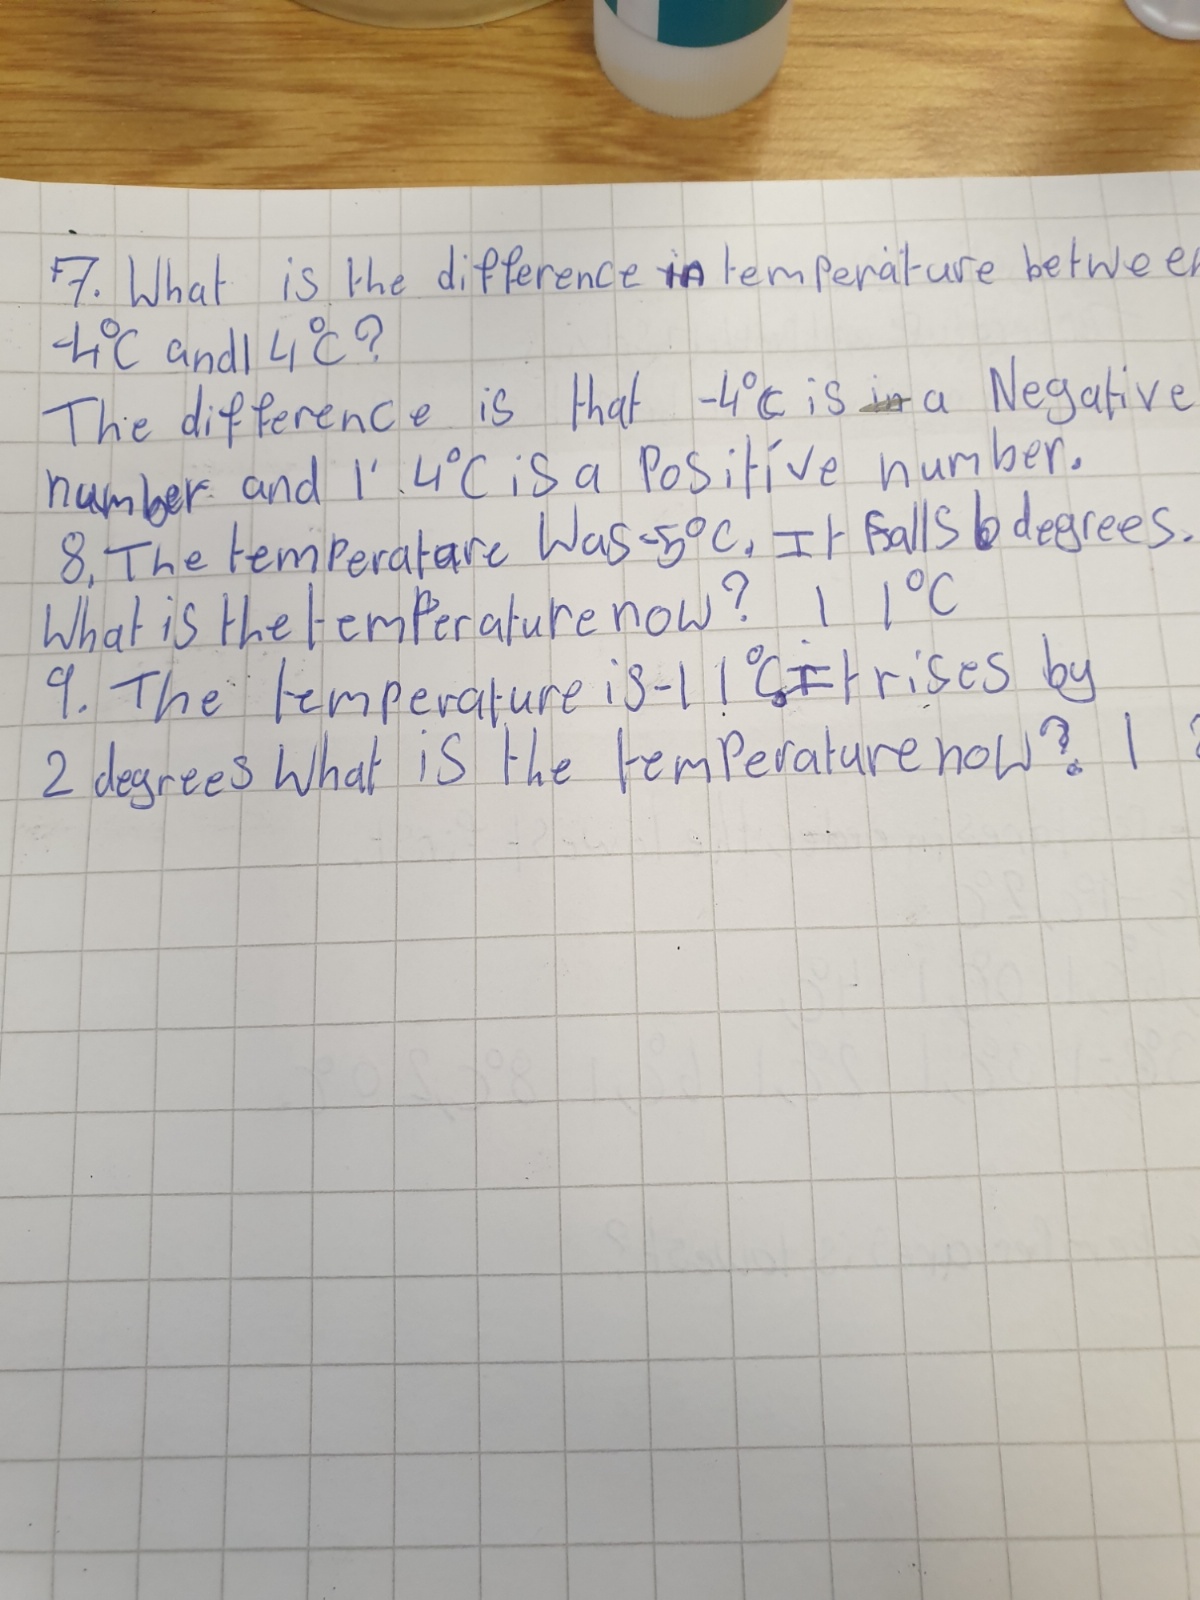 7. What is the difference in temperature between
-4°C and 14°C?
The difference is that -4°C is a Negative
number and 14°C is a Positive number.
8. The temperature Was -5°C. It Falls 6 degrees.
What is the temperature now? 11°C
9. The temperature is -11°C. It rises by
2 degrees What is the temperature now? 1